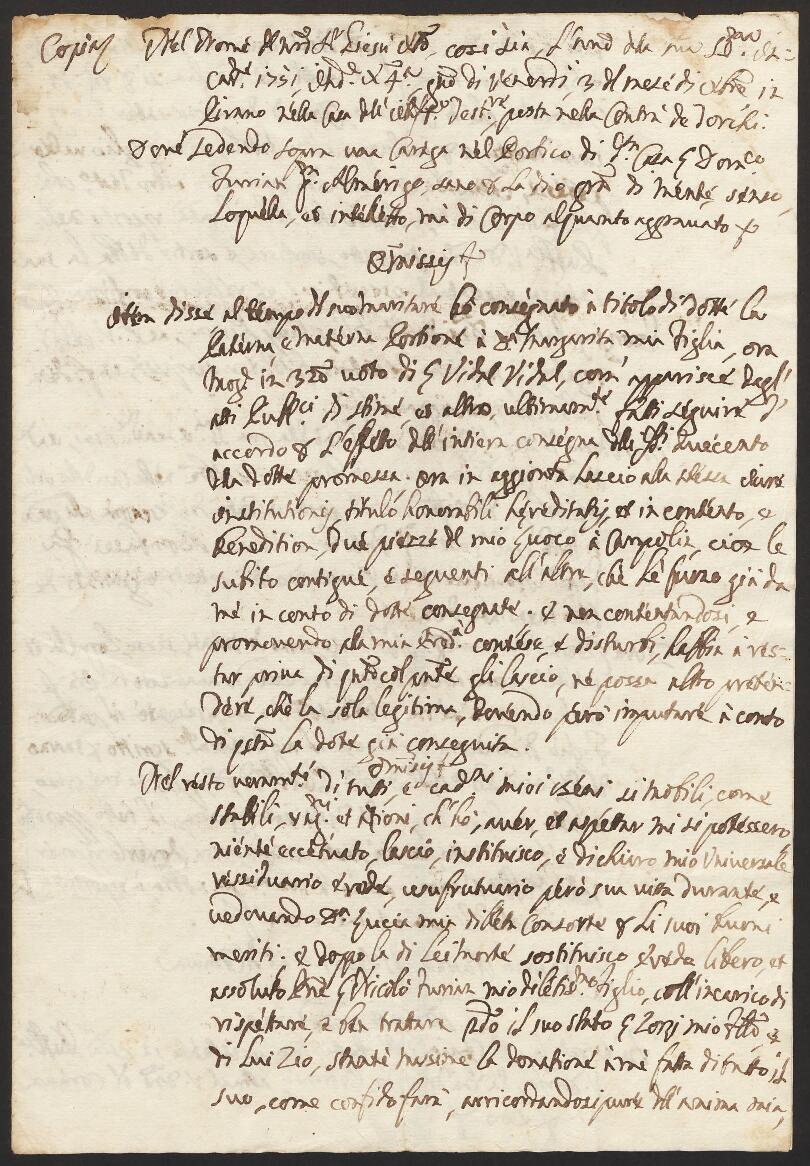 Copia Nel Nome del nro Sr Giesù Xsto, così sia, L'anno della sua
1731, Indne giorno di Venerdì, 3 del mese di in
Pirano nella Casa dell' posta nella Contrà de
Dove sedendo sopra una Carega nel Portico di Casa
qm Almerigo, sano di mente, senso,
Loquella, et intelletto, mà di Corpo alquanto aggravato
Omissis
Item disse al tempo del suo maritare hò consegnato à titolo di dotte la
Paterna, e materna Portione à Margarita mia Figlia, ora
in voto di Vidal Vidal, com' apparisce dagl'
atti di stime, et altro, ultimamte fatti seguire d'
accordo l'effetto dell'intiera consegna delli duecento
della dotte promessa. ora in aggionta lascio alla stessa iure
institutionis, titulo honorabili hereditatis, et in contento, e
benedition, due piezze del mio Luoco à Campolin, cioè le
subito contigue, e seguenti all'altre, che le furno già da
me in conto di dotte consegnate. e non contentandosi, e
promovendo alla mia Eredità contese, e disturbi, habbia à res-
tar priva di gli lascio, ne possa altro preten-
dere, che la sola legitima, dovendo però imputare à conto
di la dote già conseguita.
Omissis
Nel resto veramte di tutti, e cadni miei beni sì mobili, come
stabili, ragni et Ationi, ch' hò, aver, et aspettar mi si potessero
niente eccettuato, lascio, instituisco, e dichiaro mio Universale
ressiduario erede, usufrutuario però sua vitta durante, e
vedovando Lucia mia diletta Consorte li suoi buoni
meriti. e doppo la di Lei morte sostituisco erede libero, et
assoluto Nicolò mio dilettmo figlio, coll' incarico di
rispettare, e ben tratare il suo stato Zorzi mio, e
di Lui Zio, stante la donatione à me fatta di tutto il
suo, come confido farà, arricordandosi pure dell'anima mia,